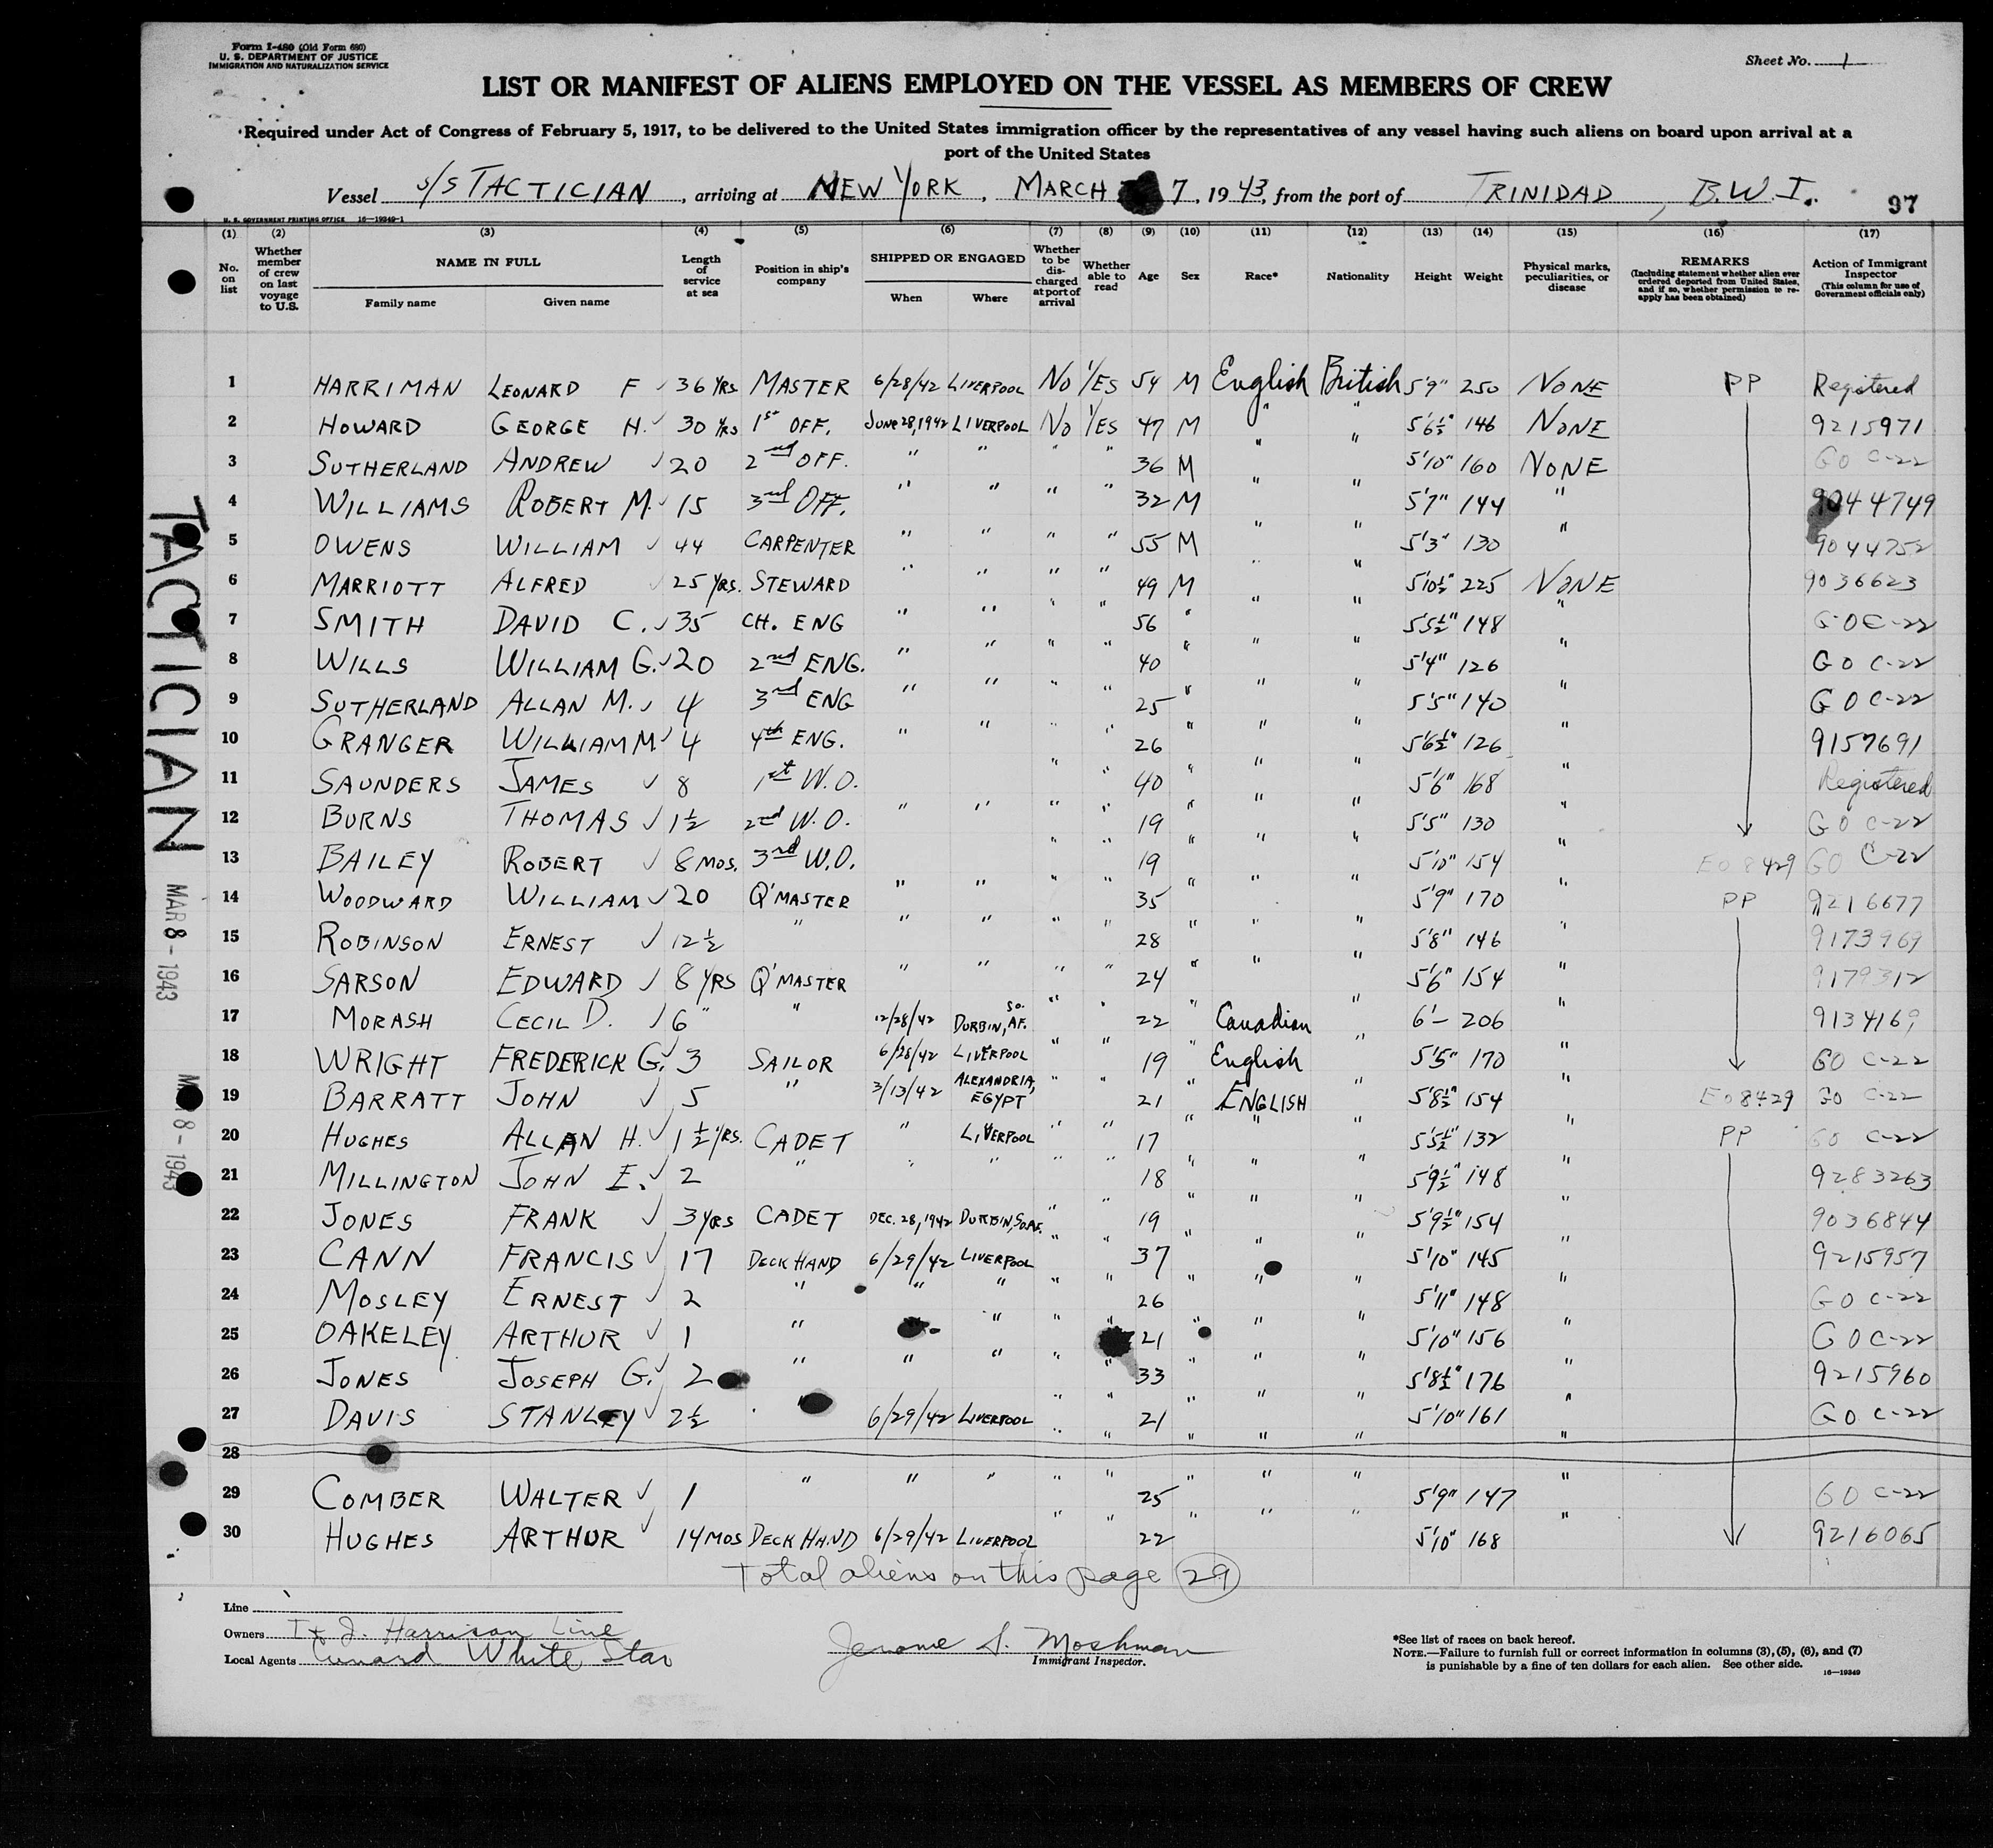 Form I-480 (Old Form 680)
U. S. DEPARTMENT OF JUSTICE
IMMIGRATION AND NATURALIZATION SERVICE
Sheet No. 1
LIST OR MANIFEST OF ALIENS EMPLOYED ON THE VESSEL AS MEMBERS OF CREW
Required under Act of Congress of February 5, 1917, to be delivered to the United States immigration officer by the representatives of any vessel having such aliens on board upon arrival at a
port of the United States
Vessel S/S TACTICIAN, arriving at NEW YORK, MARCH 7, 1943, from the port of TRINIDAD, B.W.I. 97
U. S. GOVERNMENT PRINTING OFFICE 16—19349-1
(1) (2) (3) (4) (5) (6) (7) (8) (9) (10) (11) (12) (13) (14) (15) (16) (17)
No. on list
Whether member of crew on last voyage to U.S.
NAME IN FULL
Family name Given name
Length of service at sea
Position in ship's company
SHIPPED OR ENGAGED
When Where
Whether to be discharged at port of arrival
Whether able to read
Age Sex Race* Nationality Height Weight
Physical marks, peculiarities, or disease
REMARKS
(Including statement whether alien ever ordered deported from United States, and if so, whether permission to reapply has been obtained)
Action of Immigrant Inspector
(This column for use of Government officials only)
1 HARRIMAN LEONARD F 36 YRS MASTER 6/28/42 LIVERPOOL NO YES 54 M English British 5'9" 250 NONE PP Registered
2 HOWARD GEORGE H. 30 YRS 1st OFF. June 28, 1942 LIVERPOOL NO YES 47 M " " 5'6½" 146 NONE 9215971
3 SUTHERLAND ANDREW 20 2nd OFF. " " " " 36 M " " 5'10" 160 NONE GO C-22
4 WILLIAMS ROBERT M. 15 3rd OFF. " " " " 32 M " " 5'7" 144 " 9044749
5 OWENS WILLIAM 44 CARPENTER " " " " 55 M " " 5'3" 130 " 9044752
6 MARRIOTT ALFRED 25 YRS. STEWARD " " " " 49 M " " 5'10½" 225 NONE 9036623
7 SMITH DAVID C. 35 CH. ENG " " " " 56 " " " 5'5½" 148 " GO C-22
8 WILLS WILLIAM G. 20 2nd ENG. " " " " 40 " " " 5'4" 126 " GO C-22
9 SUTHERLAND ALLAN M. 4 3rd ENG " " " " 25 " " " 5'5" 140 " GO C-22
10 GRANGER WILLIAM M 4 4th ENG. " " " " 26 " " " 5'6½" 126 " 9157691
11 SAUNDERS JAMES 8 1st W.O. " " 40 " " " 5'6" 168 " Registered
12 BURNS THOMAS 1½ 2nd W.O. " " " " 19 " " " 5'5" 130 " GO C-22
13 BAILEY ROBERT 8 MOS. 3rd W.O. " " 19 " " " 5'10" 154 " EO 8429 GO C-22
14 WOODWARD WILLIAM 20 Q'MASTER " " " " 35 " " " 5'9" 170 " PP 9216677
15 ROBINSON ERNEST 12½ " " " " " 28 " " " 5'8" 146 " 9173969
16 SARSON EDWARD 8 YRS Q'MASTER " " " " 24 " " " 5'6" 154 " 9179312
17 MORASH CECIL D. 6 " " 12/28/42 DURBIN, SO. AF. " " 22 " Canadian " 6'– 206 " 9134169
18 WRIGHT FREDERICK G. 3 SAILOR 6/28/42 LIVERPOOL " " 19 " English 5'5" 170 " GO C-22
19 BARRATT JOHN 5 " 3/13/42 ALEXANDRIA, EGYPT " " 21 " ENGLISH " 5'8½" 154 " EO 8429 GO C-22
20 HUGHES ALLAN H. 1½ YRS. CADET " LIVERPOOL " " 17 " " " 5'5½" 132 " PP GO C-22
21 MILLINGTON JOHN E. 2 " " " " " 18 " " " 5'9½" 148 " 9283263
22 JONES FRANK 3 YRS CADET DEC. 28, 1942 DURBIN, SO. AF. " " 19 " " " 5'9½" 154 " 9036844
23 CANN FRANCIS 17 DECK HAND 6/29/42 LIVERPOOL " " 37 " " " 5'10" 145 " 9215957
24 MOSLEY ERNEST 2 " " " " " 26 " " " 5'11" 148 " GO C-22
25 OAKELEY ARTHUR 1 " " " 21 " " " 5'10" 156 " GO C-22
26 JONES JOSEPH G. 2 " " " " " 33 " " " 5'8½" 176 " 9215960
27 DAVIS STANLEY 2½ 6/29/42 LIVERPOOL " " 21 " " " 5'10" 161 " GO C-22
28
29 COMBER WALTER 1 " " " " " 25 " " " 5'9" 147 " GO C-22
30 HUGHES ARTHUR 14 MOS DECK HAND 6/29/42 LIVERPOOL " " 22 " " " 5'10" 168 " 9216065
Total aliens on this page 29
Line
Owners T & J. Harrison Line
Local Agents Cunard White Star
Jerome S. Moshman
Immigrant Inspector.
*See list of races on back hereof.
NOTE.—Failure to furnish full or correct information in columns (3), (5), (6), and (7)
is punishable by a fine of ten dollars for each alien. See other side. 16—19349
TACTICIAN
MAR 8 - 1943